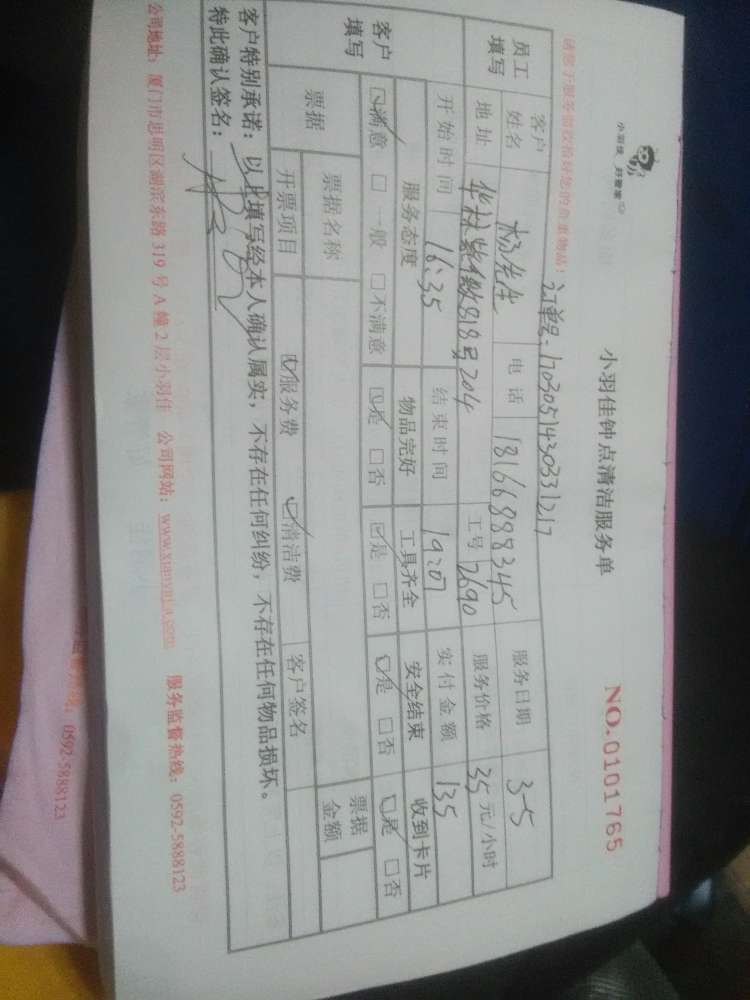 小羽佳 好管家
小羽佳钟点清洁服务单
NO.0101765
请您于服务前收拾好您的贵重物品!
订单号:1703051430331217
员工填写
客户姓名 杨先生 电话 18166888345 服务日期 3-5
地址 华林紫 818号204 工号 2690 服务价格 35元/小时
开始时间 16:35 结束时间 19:07 实付金额 135
客户填写
服务态度 物品完好 工具齐全 安全结束 收到卡片
☑满意 □一般 □不满意 ☑是 □否 ☑是 □否 ☑是 □否 ☑是 □否
票据 票据名称 票据金额
开票项目 ☑服务费 ☑清洁费 客户签名
客户特别承诺:以上填写经本人确认属实,不存在任何纠纷,不存在任何物品损坏。
特此确认签名:
公司地址:厦门市思明区湖滨东路319号A幢2层小羽佳 公司网站:www.xiaoyujia.com 服务监督热线:0592-5888123
监督热线:0592-5888123